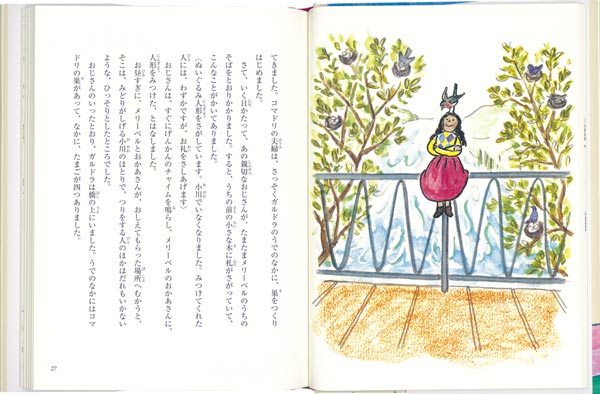 てきました。コマドリの夫婦は、さっそくガルドラのうでのなかに、巣をつくり
はじめました。
さて、いく日かたって、あの親切なおじさんが、たまたまメリーベルのうちの
そばをとおりかかりました。すると、うちの前の小さな木に札がさがっていて、
こんなことがかいてありました。
〈ぬいぐるみ人形をさがしています。小川でいなくなりました。みつけてくれた
人には、わずかですが、お礼をさしあげます〉
おじさんは、すぐにげんかんのチャイムを鳴らし、メリーベルのおかあさんに、
人形をみつけた、とはなしました。
お昼すぎに、メリーベルとおかあさんが、おしえてもらった場所へむかうと、
そこは、みどりがしげる小川のほとりで、つりをする人のほかはだれもいかない
ような、ひっそりとしたところでした。
おじさんのいったとおり、ガルドラは橋の上にいました。うでのなかにはコマ
ドリの巣があって、なかに、たまごが四つありました。
27